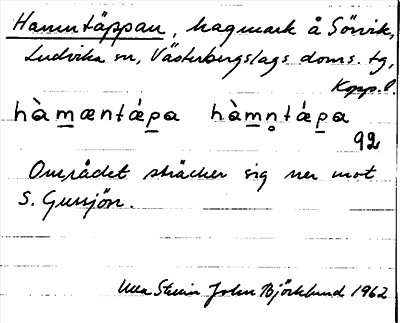 Hamntäppan, hagmark å Sörvik,
Ludvika sn, Västerbergslags doms. tg,
Kopp. l.
hàmæntápa hàmn̥tápa
92
Området sträcker sig ner mot
S. Gussjön.
John Björklund 1962